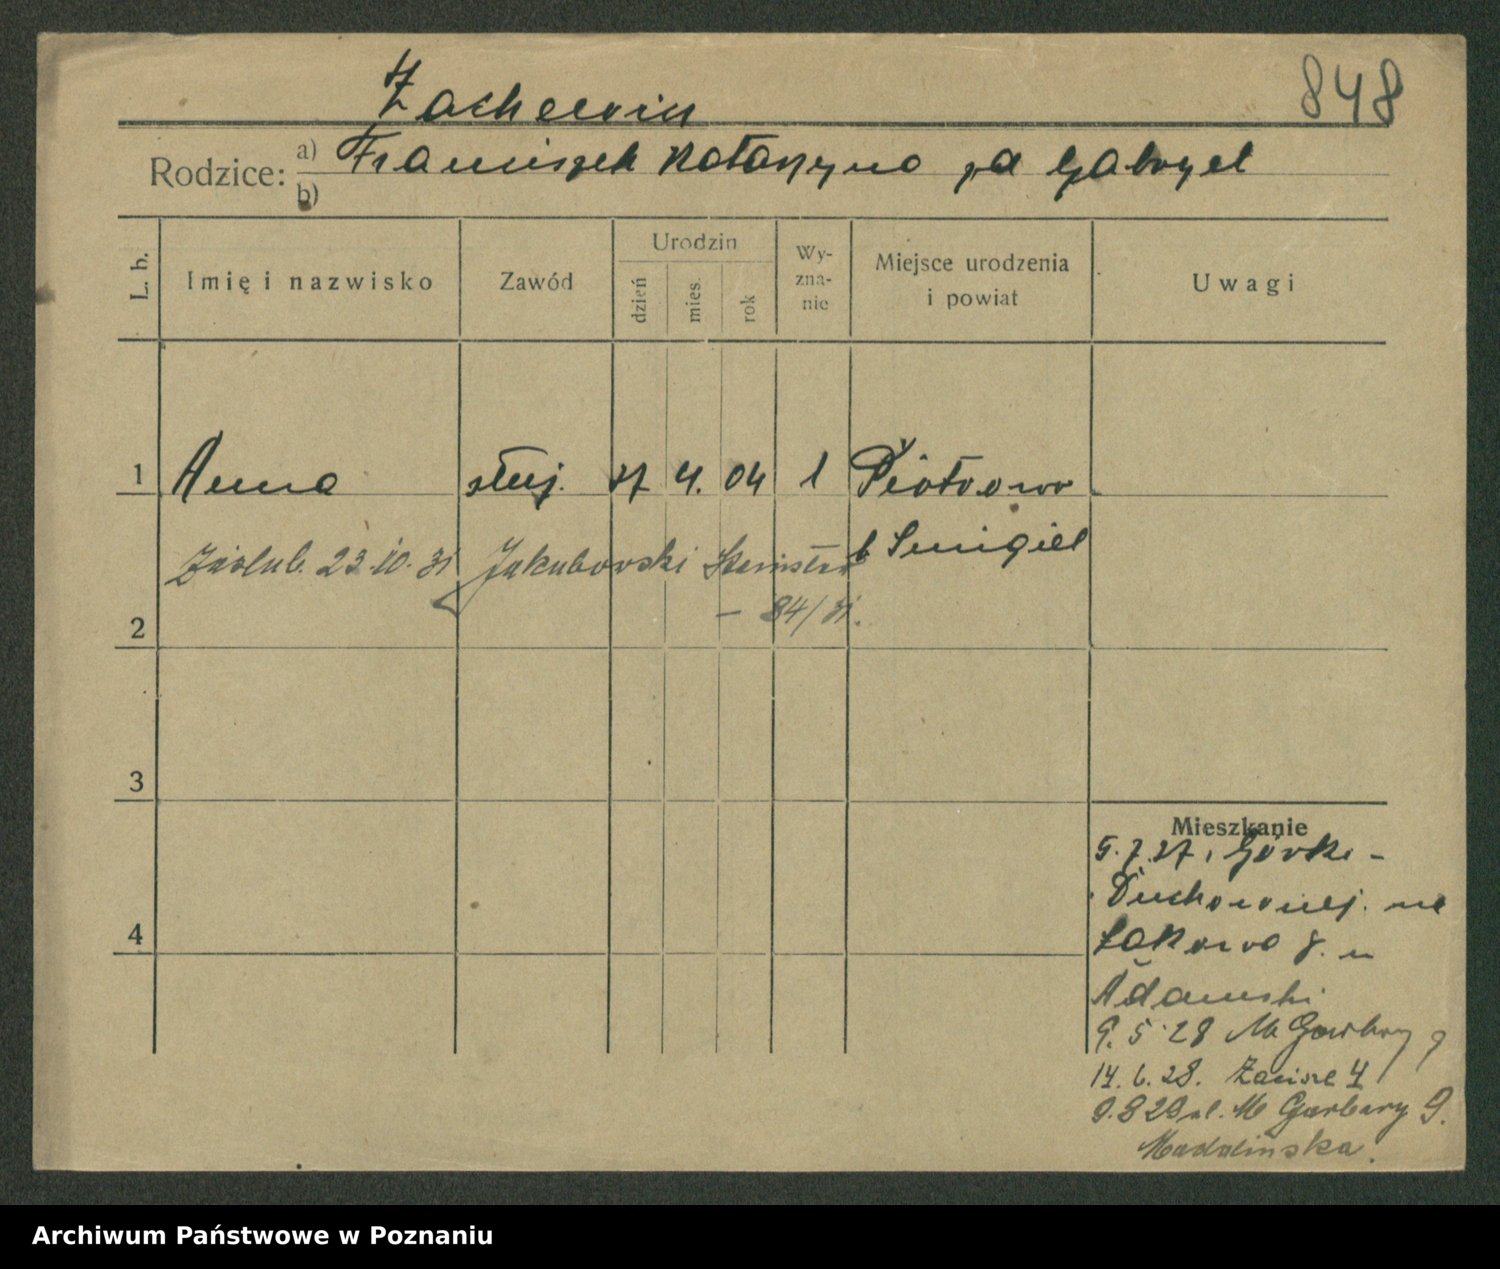 848
Rodzice: a) Franciszek Katarzyna zd Gabryel
b)
L. b. Imię i nazwisko Zawód Urodzin dzień mies. rok Wyznanie Miejsce urodzenia i powiat Uwagi
1 Anna służ. 27 4. 04 Piotrowo
Śmigiel
Zaślub. 23.10.31 Jakubowski
84/31.
2
3
4
Mieszkanie
5.7.27. Górki
Duchownej. na
Łąkowa 8. u
Adamski
9.5.28 M Garbary 9
14.6.28. Zacisze 4
M Garbary 9.
Madalińska.
Archiwum Państwowe w Poznaniu